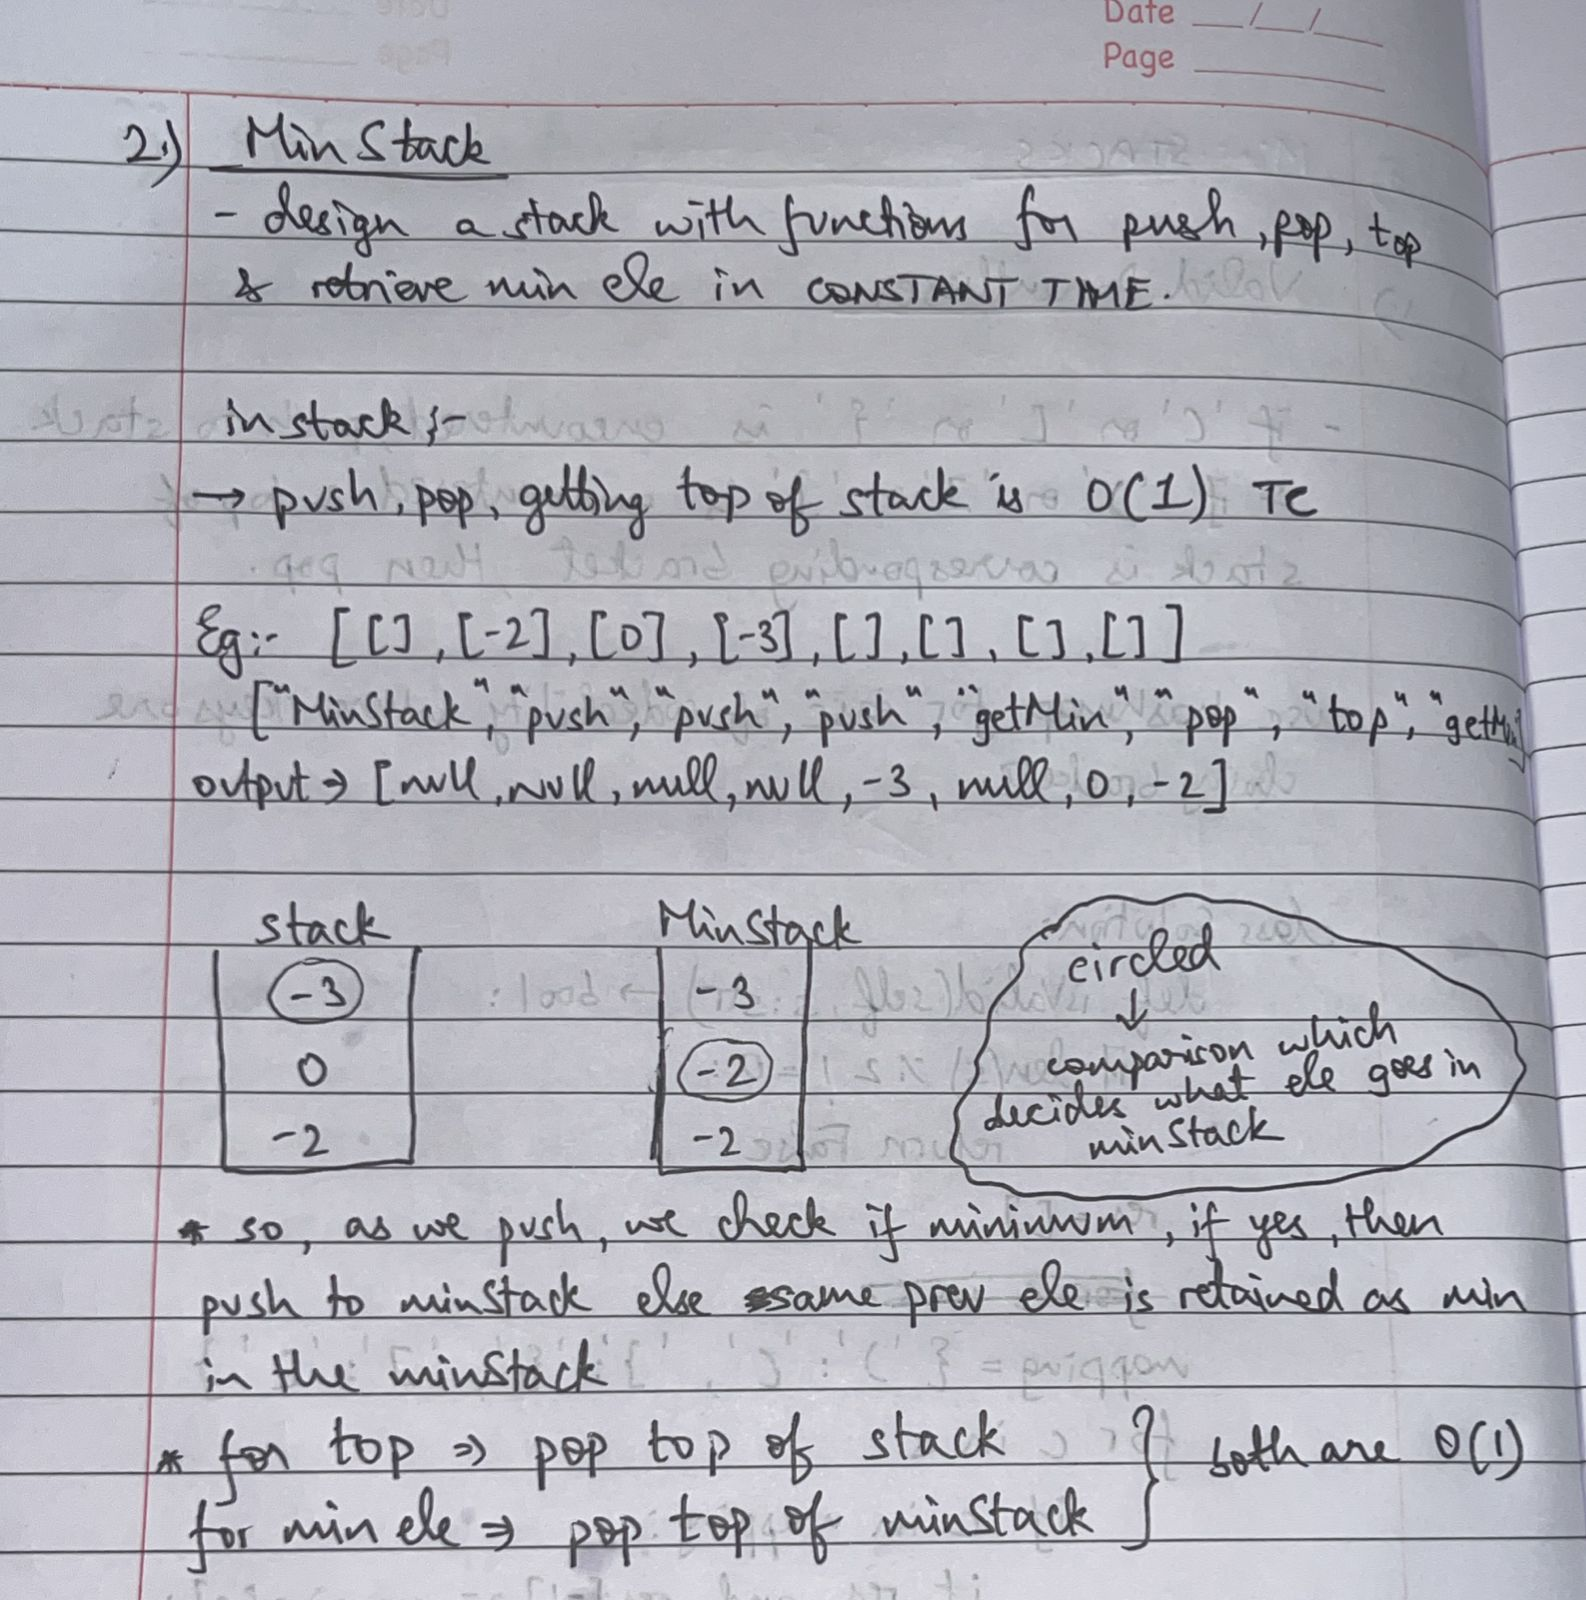 Date __/__/__
Page ______
2.) MinStack
- design a stack with functions for push, pop, top
& retrieve min ele in CONSTANT TIME.
in stack :-
→ push, pop, getting top of stack is O(1) TC
Eg:- [[], [-2], [0], [-3], [], [], [], []]
["MinStack", "push", "push", "push", "getMin", "pop", "top", "getMin"]
output → [null, null, null, null, -3, null, 0, -2]
stack
-3
0
-2
MinStack
-3
-2
-2
circled
↓
comparison which
decides what ele goes in
minStack
* so, as we push, we check if minimum, if yes, then
push to minStack else same prev ele is retained as min
in the minStack
* for top ⇒ pop top of stack
for min ele ⇒ pop top of minStack
} both are O(1)